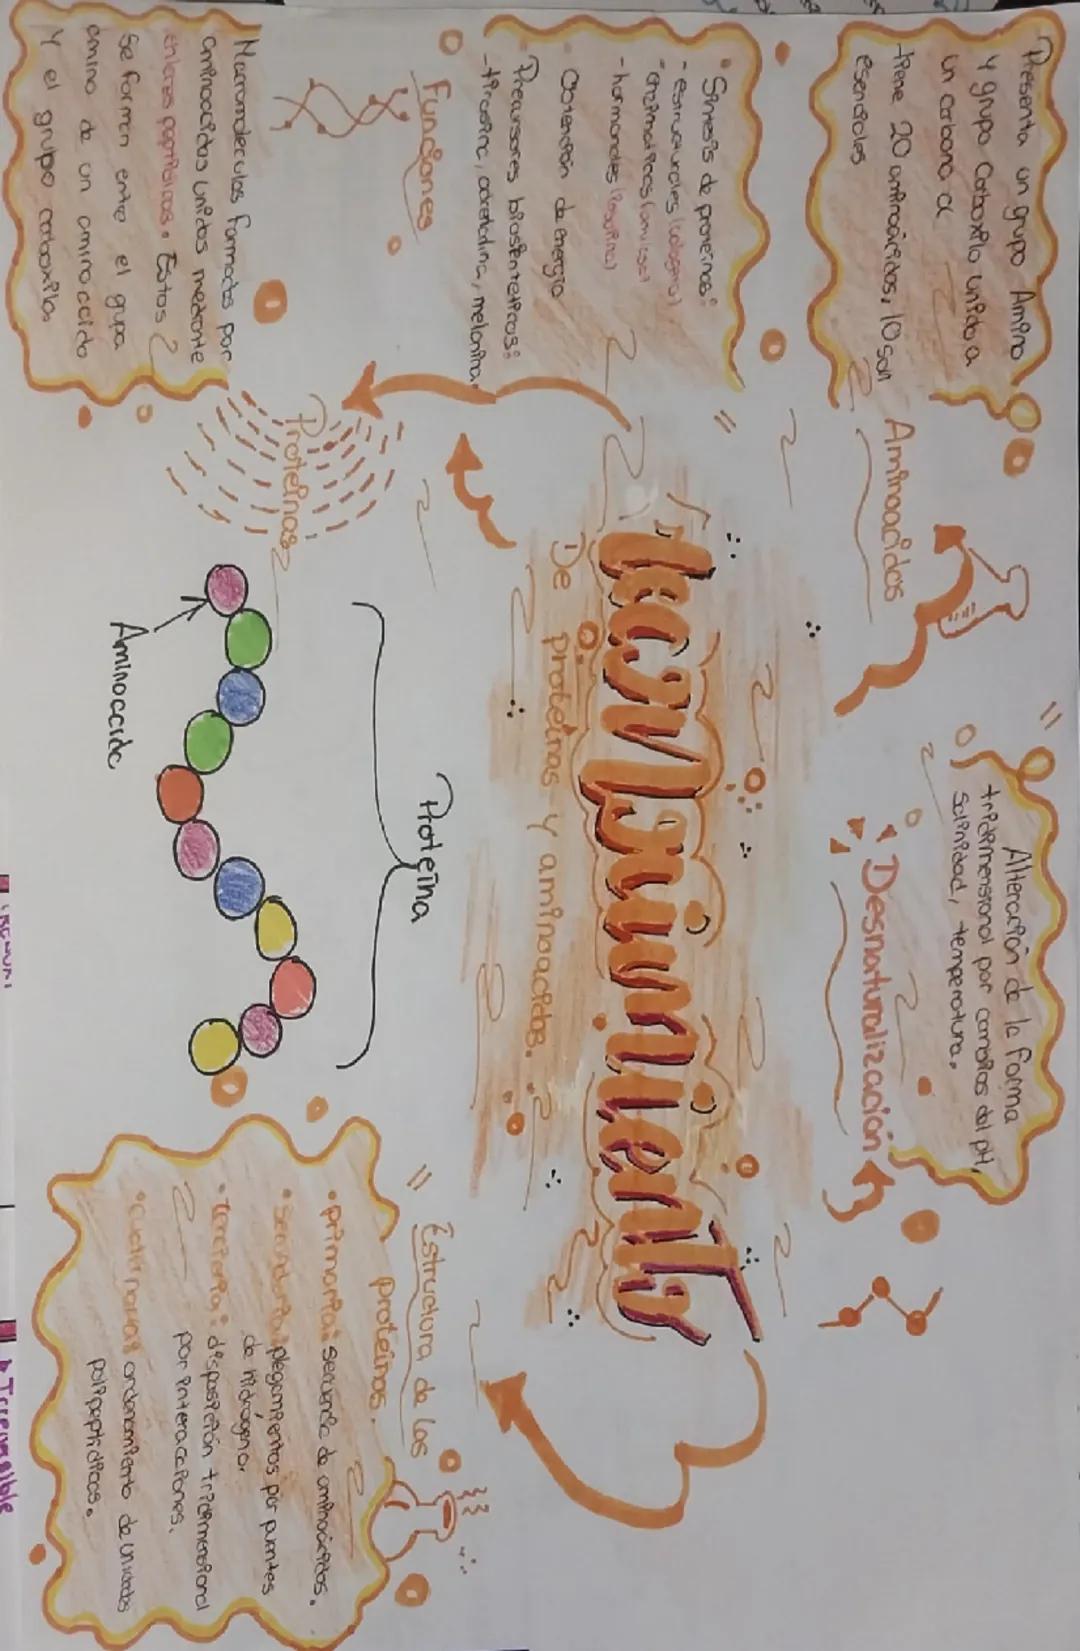 Reconocimiento
De proteínas y aminoacidos.
Aminoacidos
Presenta un grupo Amino
y grupo Carboxilo unido a
un carbono α
-tiene 20 aminoácidos, 10 son
esenciales
Desnaturalización
Alteración de la forma
tridimensional por cambios del pH,
salinidad, temperatura.
• Síntesis de proteínas:
- estructurales (colageno)
- enzimaticas (amilasa)
- hormonales (insulina)
• Obtención de energía
Precursores biosinteticos:
-tirosina, adrenalina, melanina.
Funciones
Proteínas
Macromoleculas formadas por
aminoacidos unidos mediante
enlaces peptidicos. Estos
se forman entre el grupo
amino de un aminoacido
y el grupo carboxilo.
Proteína
Aminoacido
Estructura de las
proteínas.
• primaria: secuencia de aminoácidos.
• secundaria: plegamientos por puentes
de hidrogeno.
• terciaria: disposición tridimensional
por interacciones.
• cuaternaria: ordenamiento de unidades
polipeptidicas.
Irreversible